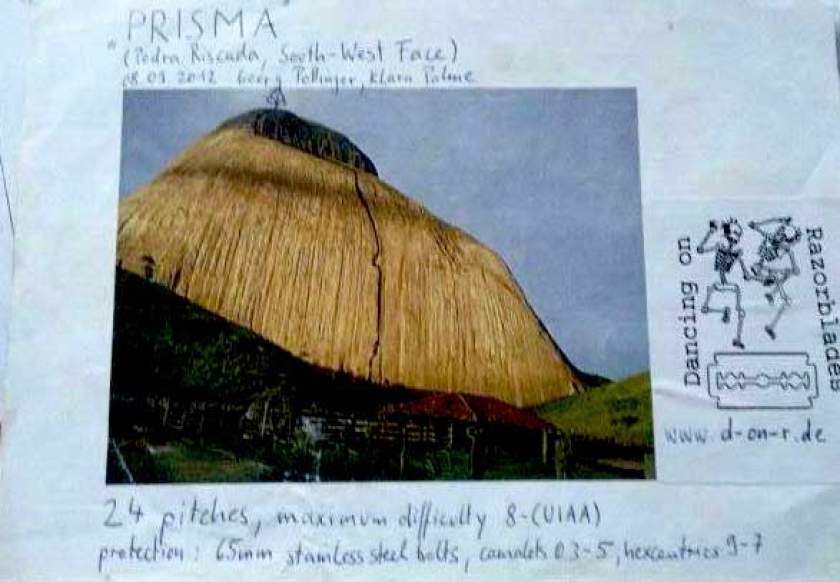 "PRISMA"
(Pedra Riscada, South-West Face)
08.09.2012 Georg Pollinger, Klara Palme
Dancing on
Razorblades
www.d-on-r.de
24 pitches, maximum difficulty 8-(UIAA)
protection: 65mm stainless steel bolts, camalots 0.3-5, hexcentrics 9-7